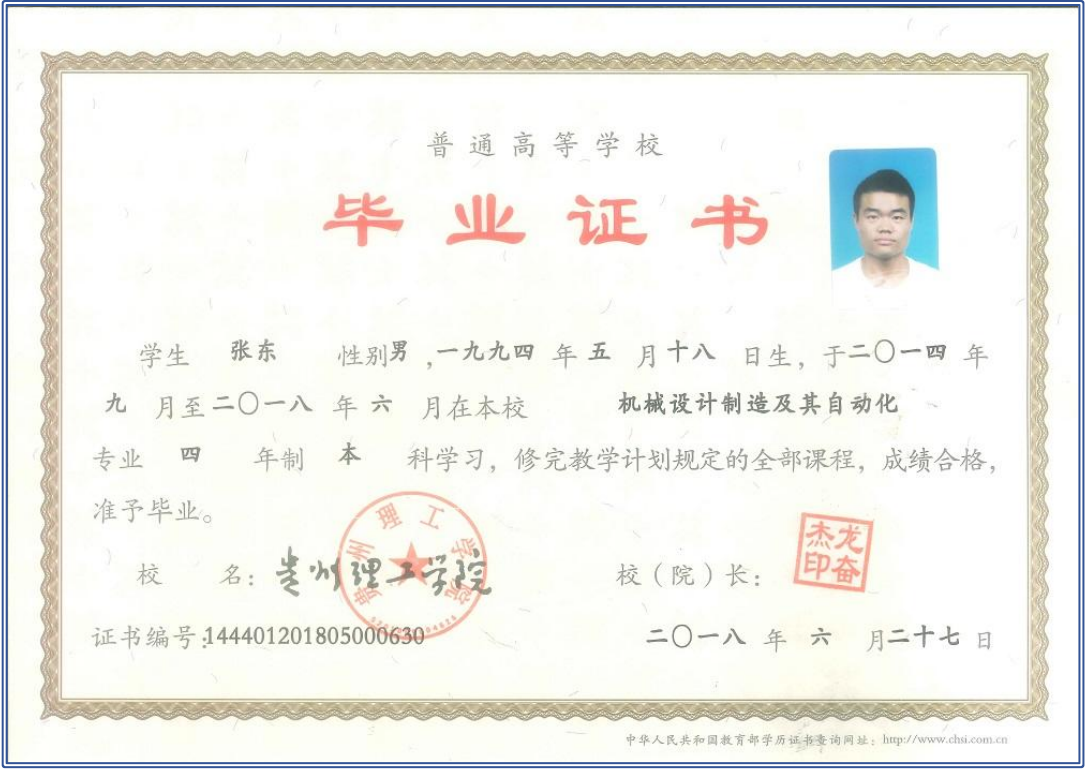 普通高等学校
毕业证书
学生 张东 性别男,一九九四年五月十八日生，于二〇一四年
九月至二〇一八年六月在本校 机械设计制造及其自动化
专业 四 年制 本 科学习，修完教学计划规定的全部课程，成绩合格，
准予毕业。
校 名：贵州理工学院 校（院）长：
贵州理工学院
龙奋杰印
证书编号:144401201805000630 二〇一八年六月二十七日
中华人民共和国教育部学历证书查询网址：http://www.chsi.com.cn